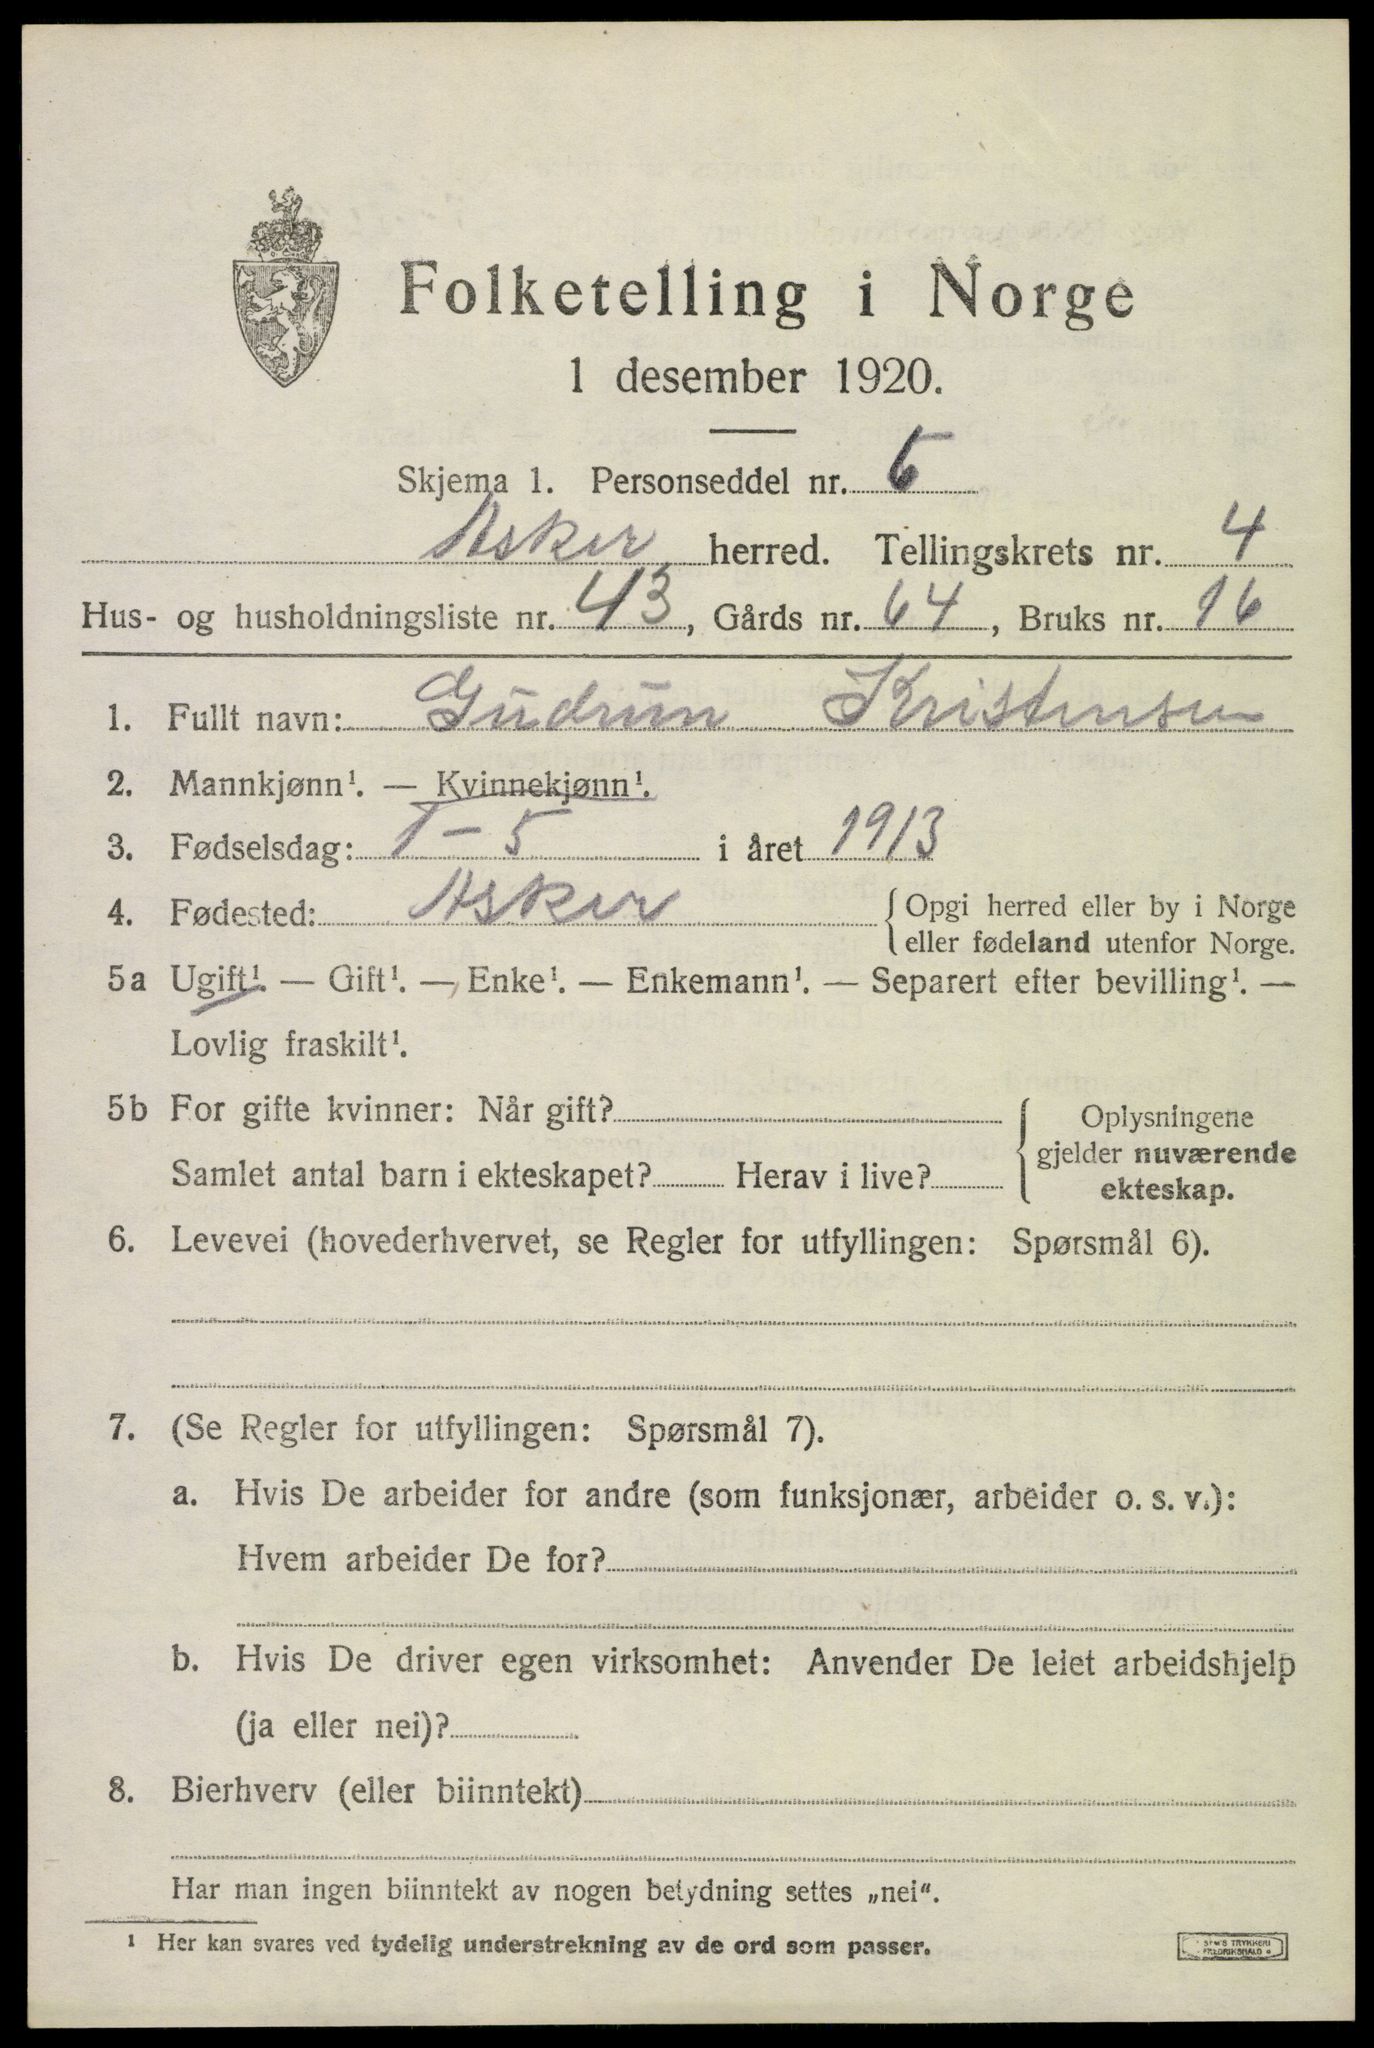 Folketelling i Norge
1 desember 1920.
Skjema 1. Personseddel nr.
Asker herred. Tellingskrets nr. 4
Hus- og husholdningsliste nr. 43, Gårds nr. 64, Bruks nr. 16
1. Fullt navn: Gudrun Kristensen
2. Mannkjønn¹. — Kvinnekjønn¹.
3. Fødselsdag: 1-5 i året 1913
4. Fødested: Asker {Opgi herred eller by i Norge
eller fødeland utenfor Norge.
5a Ugift¹. — Gift¹. — Enke¹. — Enkemann¹. — Separert efter bevilling¹. —
Lovlig fraskilt¹.
5b For gifte kvinner: Når gift? { Oplysningene
gjelder nuværende
Samlet antal barn i ekteskapet? Herav i live?
ekteskap.
6. Levevei (hovederhvervet, se Regler for utfyllingen: Spørsmål 6).
7. (Se Regler for utfyllingen: Spørsmål 7).
a. Hvis De arbeider for andre (som funksjonær, arbeider o. s. v.):
Hvem arbeider De for?
b. Hvis De driver egen virksomhet: Anvender De leiet arbeidshjelp
(ja eller nei)?
8. Bierhverv (eller biinntekt)
Har man ingen biinntekt av nogen betydning settes „nei“.
¹ Her kan svares ved tydelig understrekning av de ord som passer.
TRYKKERI
FREDRIKSHALD